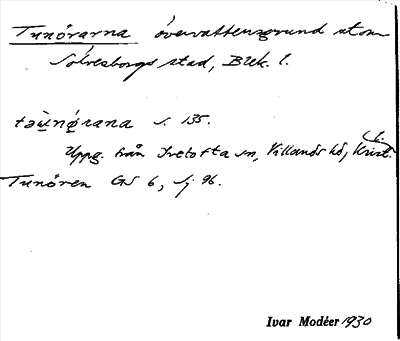 Tunörarna övervattensgrund utom
Sölvesborgs stad, Blek. l.
təùnǿrana s. 135.
Uppg. från Ivetofta sn, Villands hd, Krist. l.
Tunören GS 6, Sj 96.
Ivar Modéer 1930